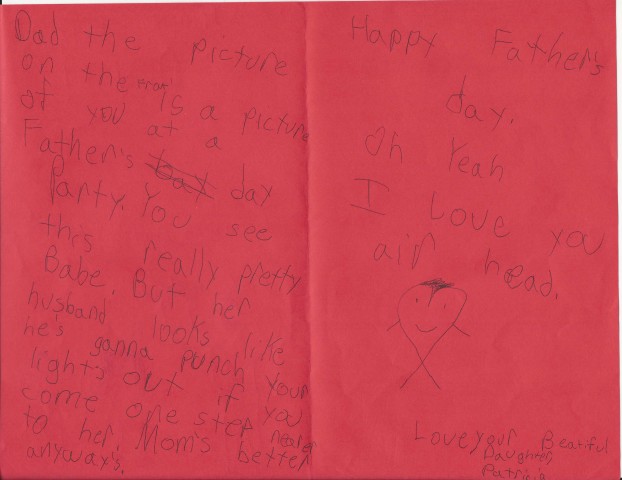 Dad the picture
on the front is a picture
of you at a
Father's day day
Party. You see
this really pretty
Babe. But her
husband looks like
he's ganna punch your
light's out if you
come one step nearer
to her. Mom's better
anyway's.
Happy Father's
day.
Oh Yeah
I Love you
air head.
Love your Beatiful
Daughter,
Patricia